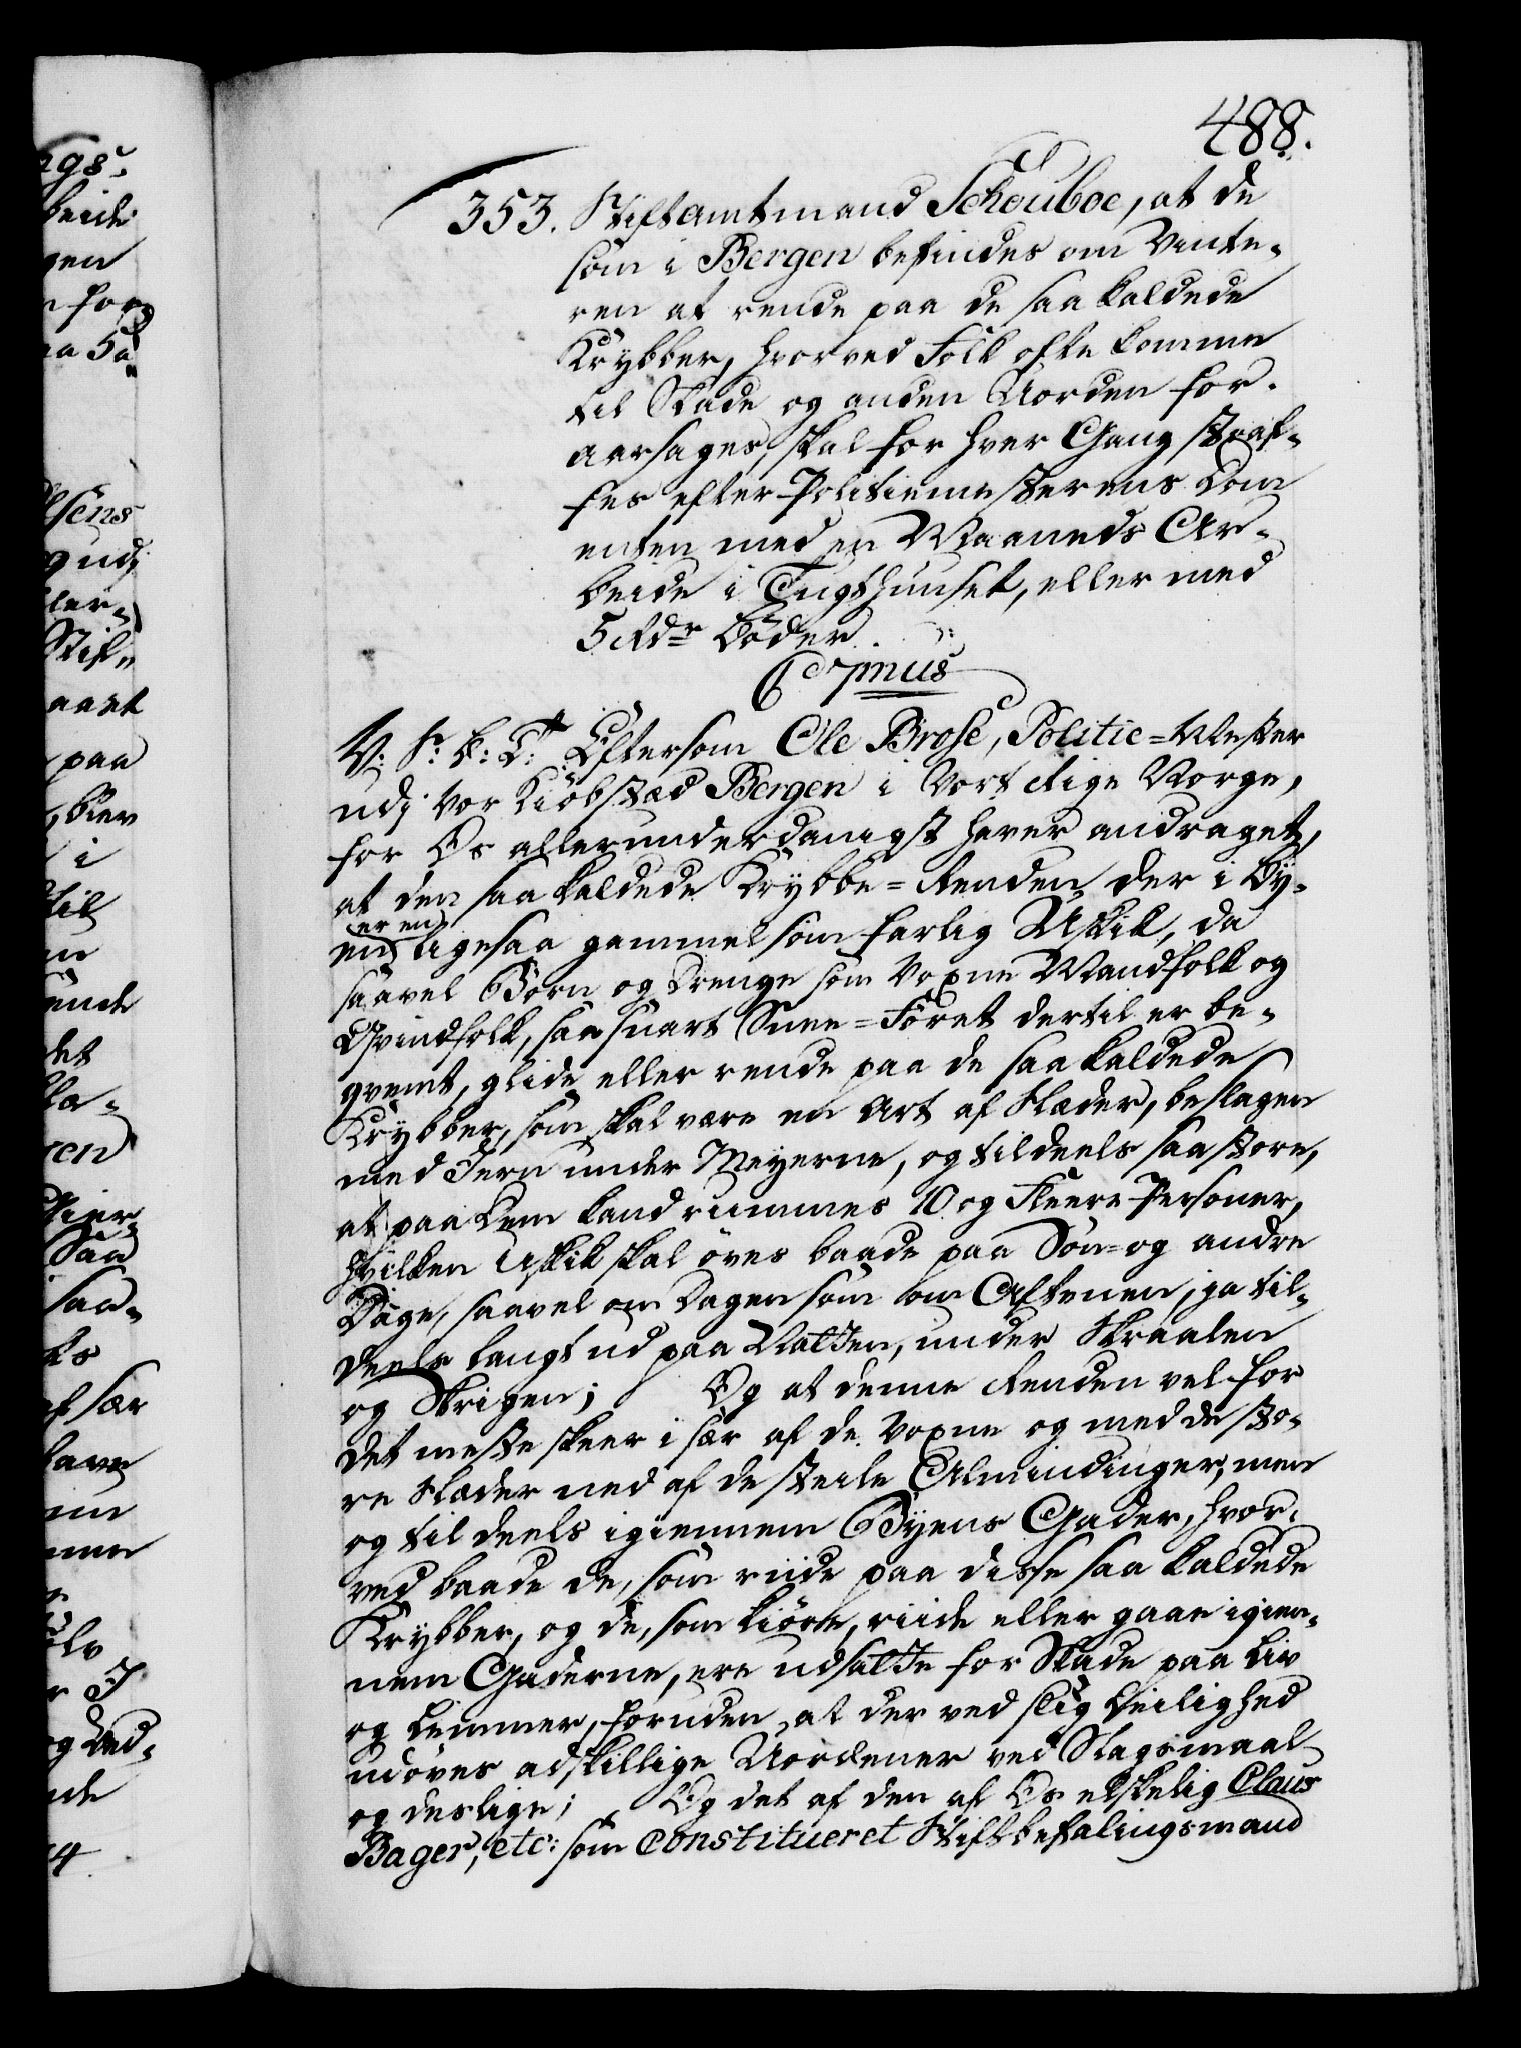 488.
353. Stiftamtmand Schouboe, at de
som i Bergen befindes om Vinte-
ren at rende paa de saa kaldede
Krybber, hvorved Folk ofte komme
til Skade og anden Uorden for-
aarsages, skal for hver Gang straf-
fes efter Politiemesterens Dom
enten med en Maaneds Ar-
beide i Tugthuuset, eller med
5 Rdr Bøder.
C 7mus
V: Sr. B: T: Eftersom Ole Brose, Politie=Mester
udi Vor Kiøbstæd Bergen i Vort Rige Norge,
for Os allerunderdanigst haver andraget,
at den saa kaldede Krybbe=Renden der i By-
er en
en ligesaa gammel som farlig Uskik, da
saavel Børn og Drenge som Voxne Mandfolk og
Qvindfolk, saa snart Snee=Føret dertil er be-
qvemt, glide eller rende paa de saa kaldede
Krybber, som skal være en Art af Slæder, beslagen
med Jern under Meyerne, og tildeels saa store,
at paa Dem kand rummes 10 og Fleere Personer,
hvilken Uskik skal øves baade paa Søn= og andre
Dage, saavel om Dagen som om Aftenen, ja til-
deels langt ud paa Natten, under Skraalen
og Skrigen; Og at denne Renden vel for
det meste skeer i sær af de Voxne og med de sto-
re Slæder ned af de steile Almindinger, men
og til deels igiennem Byens Gader, hvor-
ved baade de, som riide paa disse saa kaldede
Krybber, og de, som kiøre, riide eller gaae igien-
nem Gaderne, ere udsatte for Skade paa Liv
og Lemmer, foruden at der ved slig Leilighed
udøves adskillige Uordener ved Slagsmaal
og deslige; Og det af den af Os elskelig Claus
Bager, etc: som Constitueret Stiftbefalingsmand